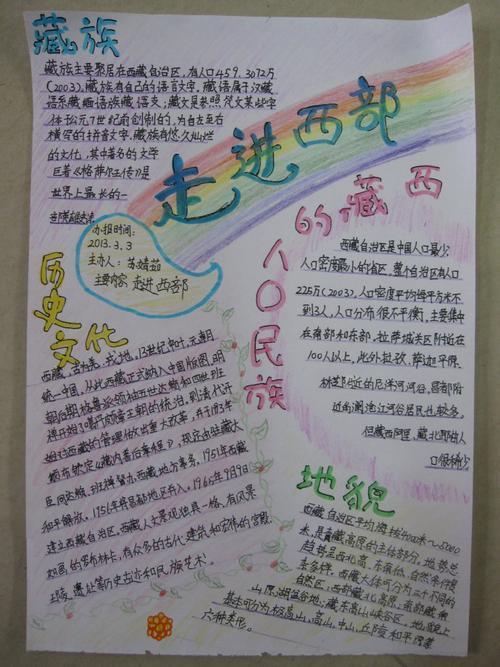 藏族
藏族主要聚居在西藏自治区，有人口459.3072万
(2003)，藏族有自己的语言文字，藏语属于汉藏
语系藏缅语族藏语支；藏文是参照梵文某些字
体于公元7世纪前创制的，为自左至右
横写的拼音文字，藏族有悠久灿烂
的文化，其中著名的文学
巨著《格萨尔王传》是
世界上最长的一
走进西部
办报时间：
2013.3.3
主办人：苏婧茹
主要内容：走进西部
历史文化
西藏，古为羌、戎地，13世纪中叶，元朝
统一中国，从此西藏正式纳入中国版图，明
建立西藏自治区，西藏人文景观独具一格，有风景
如画的罗布林卡，有众多的古代建筑和宏伟的宫殿
王陵，遗址等历史古迹和民族艺术！
西藏的
人口民族
西藏自治区是中国人口最少
人口密度最小的省区，整个自治区有人口
225万(2003)，人口密度平均每平方米不
到3人，人口分布很不平衡，主要集中
在南部和东部，拉萨城关区附近在
100人以上，此外拉孜、萨迦平原、
林芝附近的尼洋河河谷，昌都附
近的澜沧江河谷居民也较多。
但藏西阿里、藏北那曲人
口很稀少
地貌
西藏自治区平均海拔4000米～5000
米，是青藏高原的主体部分，地势总
趋势是西北高，东南低，自然条件复
杂多样，西藏大体可分为三个不同的
自然区，西部高原，南部藏南
山原，湖盆谷地，藏东高山峡谷区，地貌上
基本可分为极高山，高山，中山，丘陵和平原等
六种类形。